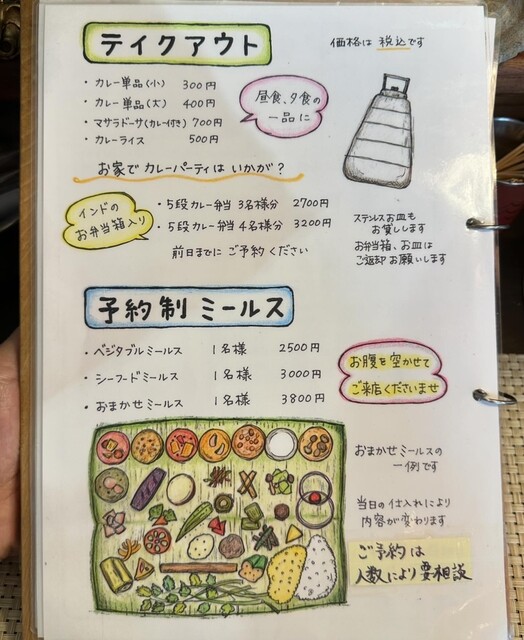 テイクアウト
価格は 税込です
・カレー単品(小) 300円
・カレー単品(大) 400円
・マサラドーサ(カレー付き) 700円
・カレーライス 500円
昼食、夕食の
一品に
お家で カレーパーティは いかが?
インドの
お弁当箱入り
・5段カレー弁当 3名様分 2700円
・5段カレー弁当 4名様分 3200円
前日までに ご予約ください
ステンレスお皿も
お貸しします
お弁当箱、お皿は
ご返却お願いします
予約制 ミールス
・ベジタブルミールス 1名様 2500円
・シーフードミールス 1名様 3000円
・おまかせミールス 1名様 3800円
お腹を空かせて
ご来店くださいませ
おまかせミールスの
一例です
当日の仕入れにより
内容が変わります
ご予約は
人数により要相談